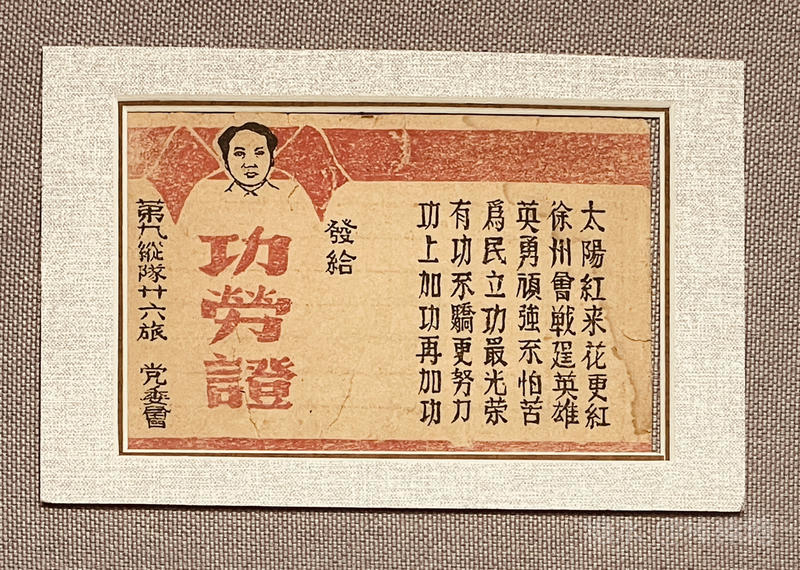 太陽紅来花更紅
徐州會戦逞英雄
英勇頑強不怕苦
爲民立功最光荣
有功不驕更努力
功上加功再加功
發給
功勞證
第九縱隊廿六旅 党委會